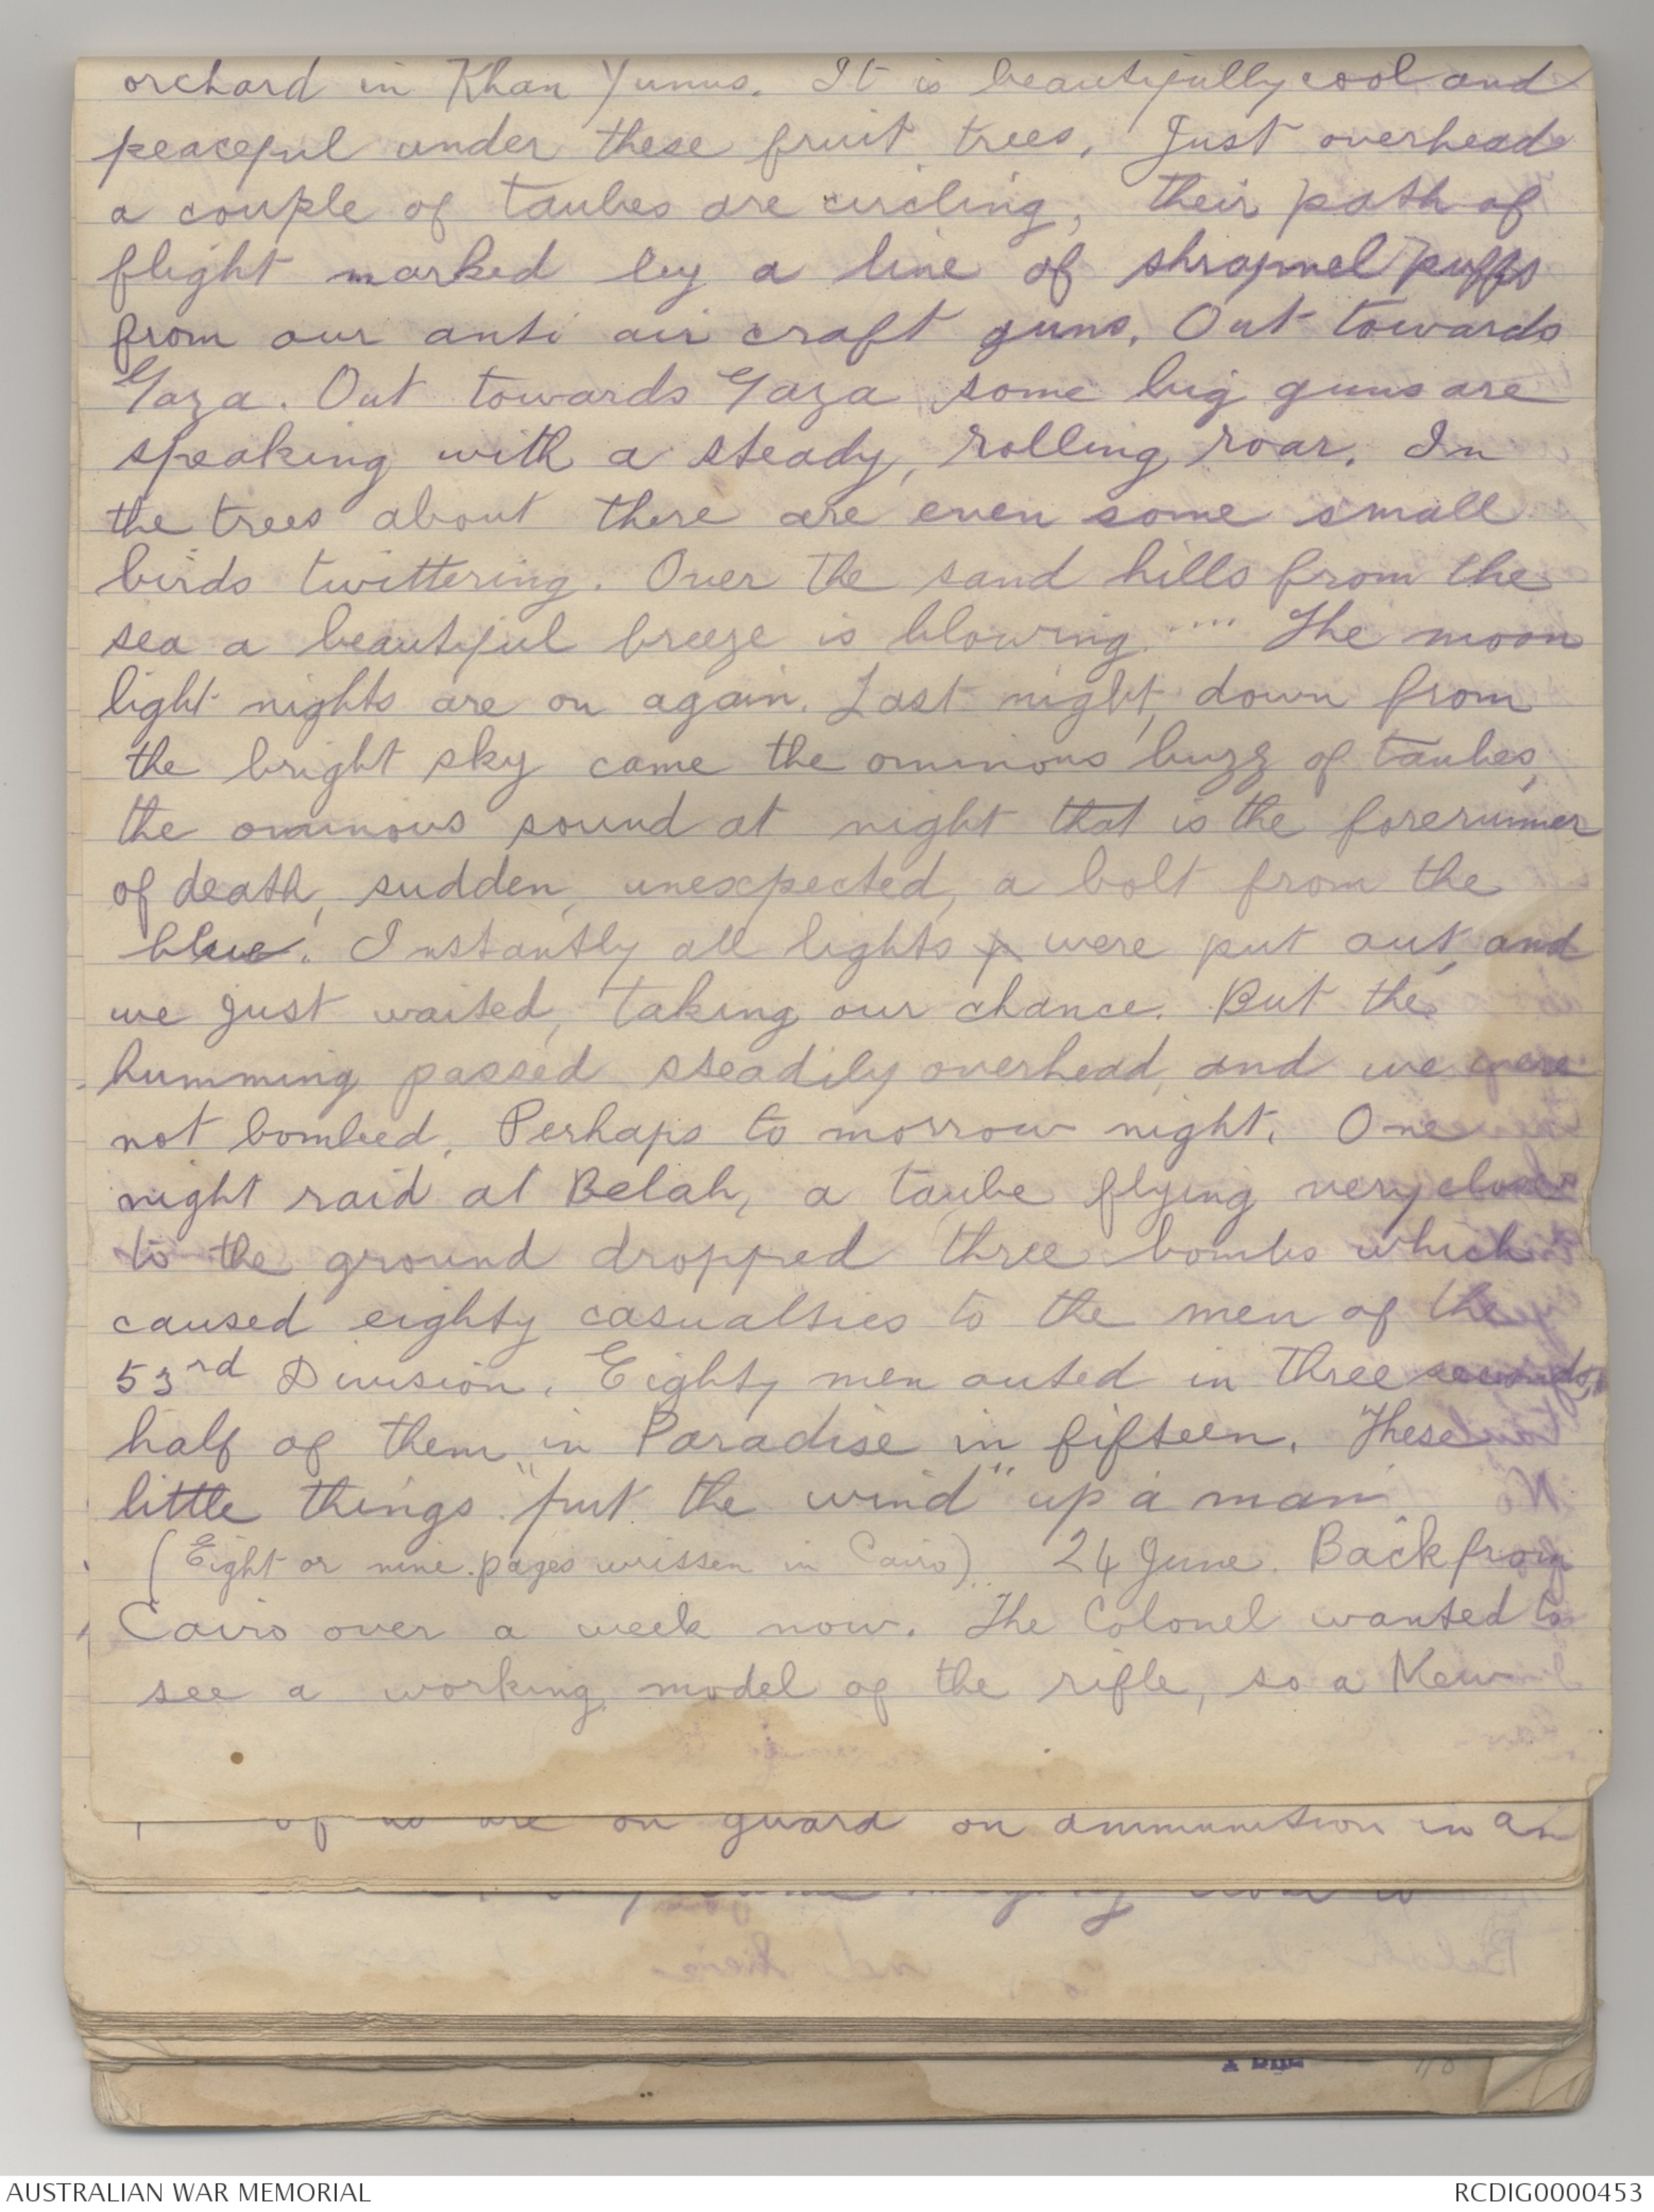 orchard in Khan Yunus. It is beautifully cool and
peaceful under these fruit trees. Just overhead
a couple of taubes are circling, their path of
flight marked by a line of shrapnel puffs
from our anti air craft guns. Out towards
Gaza. Out towards Gaza some big guns are
speaking with a steady, rolling roar. In
the trees about there are even some small
birds twittering. Over the sand hills from the
sea a beautiful breeze is blowing .... The moon
light nights are on again. Last night, down from
the bright sky came the ominous buzz of taubes,
the ominous sound at night that is the forerunner
of death, sudden, unexpected, a bolt from the
blue. Instantly all lights were put out, and
we just waited, taking our chance. But the
humming passed steadily overhead, and we were
not bombed. Perhaps to morrow night. One
night raid at Belah, a taube flying very close
to the ground dropped three bombs which
caused eighty casualties to the men of the
53rd Division. Eighty men outed in three seconds,
half of them in Paradise in fifteen. These
little things "put the wind" up a man
(Eight or nine pages written in Cairo). 24 June. Back from
Cairo over a week now. The Colonel wanted to
see a working model of the rifle, so a New
of us are on guard on ammunition in an
AUSTRALIAN WAR MEMORIAL
RCDIG0000453